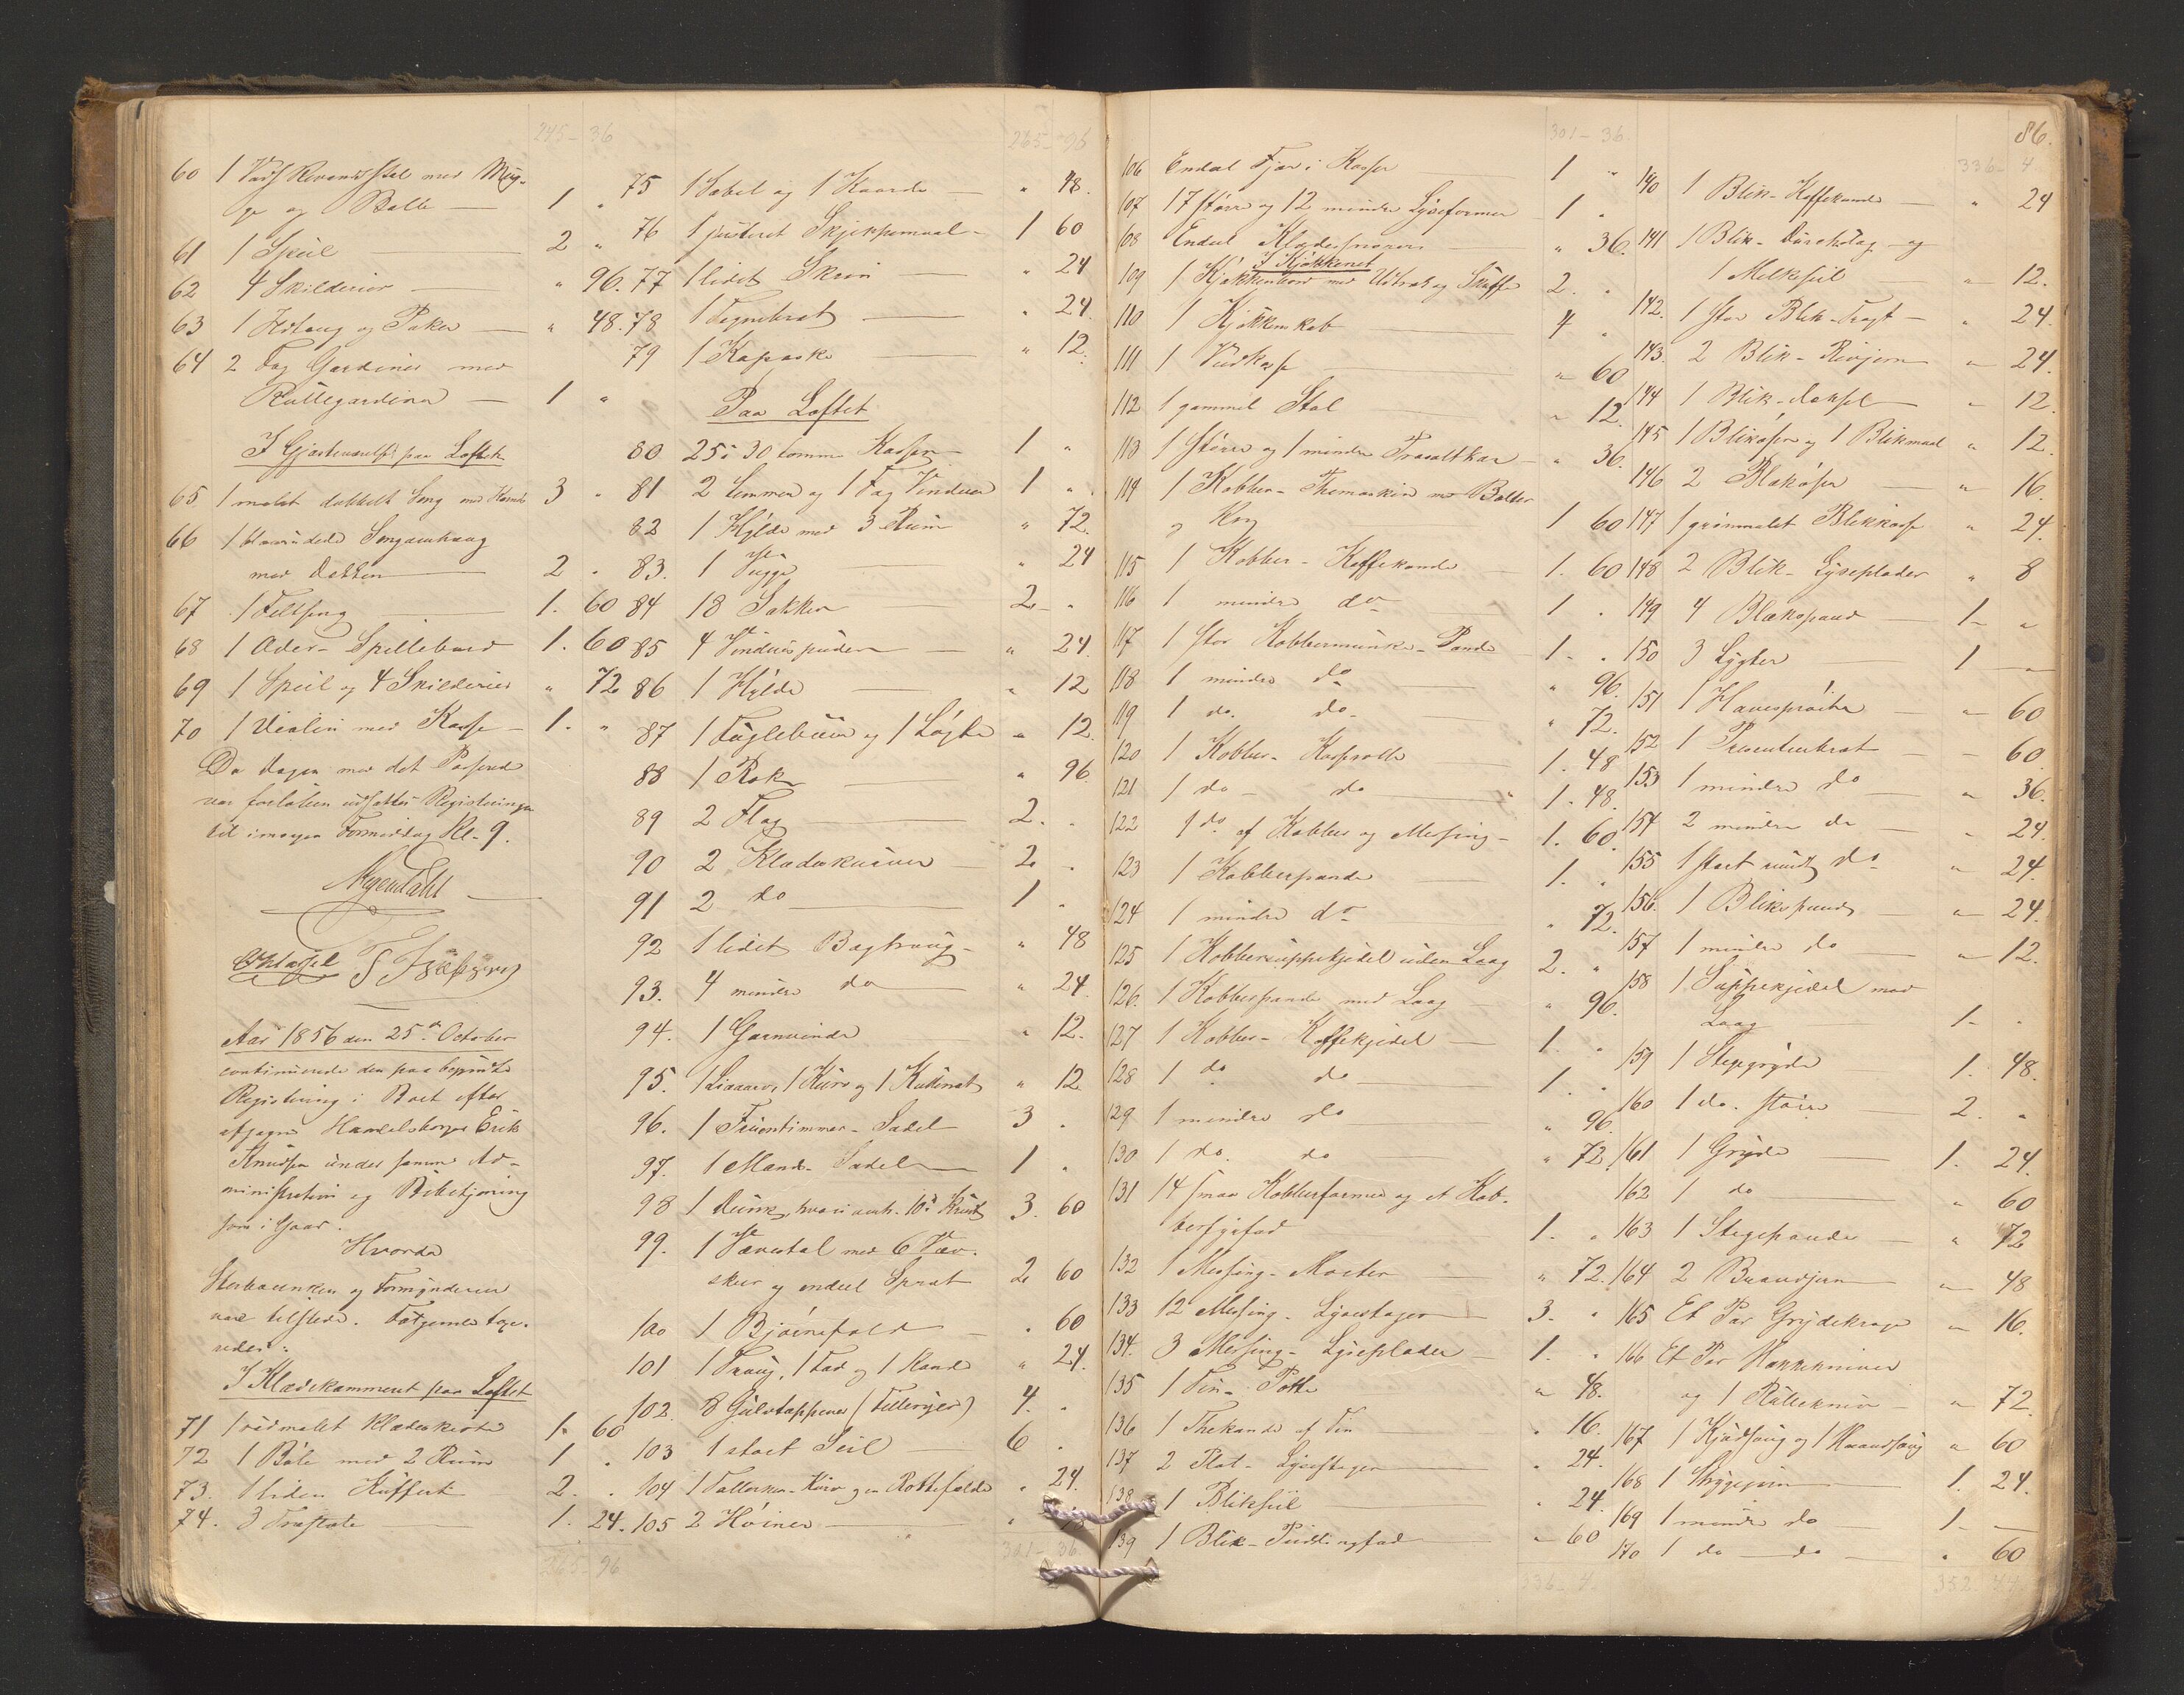 245 - 36
60 1 Vadskevandsstel med Mug-
ge og Balle — 1 "
61 1 Speil — 2 "
62 4 Skilderier — " 96.
63 1 Ildtang og Raker — " 48.
64 2 Fag Gardiner med
Rullegardiner — 1 "
I Gjæsteværelset paa Loftet
65 1 malet dobbelt Seng med 3 "
66 1 Sengeomhæng
med Dekken — 2 "
67 1 Feltseng — 1. 60
68 1 Older-Spillebord 1. 60
69 1 Speil og 4 Skilderier " 72
70 1 Violin med Kasse — 1. "
Da Dagen med det Passerede
var forløben udsattes Registeringen
til imorgen Formiddag Kl. 9.
Aar 1856 den 25de October
continuerede den paabegyndte
Registering i Boet efter
afgagne Handelsborger Erik
Knudsen under samme Ad-
ministration og Betjening
som i Gaar.
Hvorda
Sterboenken og Formynderen
var tilstede. Følgende fore-
vistes:
I Klædekammeret paa Loftet
71 1 rødmalet Klædekiste 1. 60
72 1 Bøle med 2 Rum 1 "
73. 1 liden Kuffert 2. "
74. 3 Træstole — 1. 24.
265 - 96
265 - 96
75 1 Sabel og 1 Kaarde — " 48.
76 1 justeret Skjeppemaal — 1 60
77 1 lidet Skrin — " 24
78 1 Tegnebræt — " 24.
79 1 Kapsske — " 12.
Paa Loftet
80 25 à 30 tomme Kasser — 1 "
81 2 Lemmer og 1 Fag Vinduer 1 "
82 1 Hylde med 3 Rum " 72.
83. 1 Vugge — " 24
84 18 Sækker — 2. "
85 4 Vinduespuder — " 24.
86 1 Hylde — " 12
87 1 Fuglebuur og 1 Løgte " 12.
88 1 Rok — " 96.
89 2 Flag — 2. "
90 2 Klædeskurver — 2. "
91 2 do — 1 "
92 1 lidet Bagtraug — " 48
93. 4 mindre do — " 24.
94. 1 Garnvinde " 12.
95. 1 Liaaarv, 1 Kurv og 1 " 12
96. 1 Fruentimmer-Sadel 3 "
97. 1 Mands-Sadel — 1 "
98 1 Dunk, hvori omtr. 10 ℔ Krudt 3. 60
99. 1 Vævestol med 6 Væv-
skeer og endeel Spræt 2. 60
100 1 Bjørnefeld — " 60
101 1 Traug, 1 Fad og 1 Kande " 24.
102. 8 Gulvtæpper (Tillerijer) 4. "
103 1 stort Seil — 6 "
104 1 Tallerken-Kurv og en Rottefælde " 24.
105 2 Høiner — "
301 - 36.
301 - 36.
106 Endeel Fjær i Kasser 1 "
107 17 større og 12 mindre Lyseformer 1 "
108 Endeel Klædesnorer " 36.
I Kjøkkenet
109 1 Kjøkkenbord med Udtræk og Skuffe 2. "
110 1 Kjøkkenskab 4 "
111 1 Vedkasse " 60
112 1 gammel Stol " 12.
113 1 større og 1 mindre Træsaltkar — " 36.
114 1 Kobber-Themaskin med Bolter
og Rog 1 60
115 1 Kobber-Kaffekande — 1. 60
116 1 mindre do 1 "
117 1 stor Kobbermunke-Pande 1. "
118 1 mindre do " 96.
119 1 do. do — " 72.
120 1 Kobber-Kasserolle 1. 48
121 1 do — do — 1. 48.
122 1 do af Kobber og Messing — 1. 60.
123 1 Kobberpande — 1. "
124 1 mindre do " 72.
125 1 Kobbersuppekjedel uden Laag 2. "
126. 1 Kobberpande med Laag — " 96.
127 1 Kobber-Kaffekjedel — 1. "
128 1 do do 1. "
129 1 mindre do " 96.
130 1 do. do " 72.
131 14 smaa Kobberformer og et Kob-
berfad 1. "
132 1 Messing-Morter — " 72.
133 12 Messing-Lysestager 3. "
134. 3 Messing-Lyseplader — 1. "
135 1 Tin-Potte " 48.
136 1 Thekande af Tin — " 16.
137 2 Plet-Lysestager — " 24.
138 1 Bliksil " 24.
139 1 Blik-Puddingfad — " 60
336 - 4.
86.
336 - 4.
140 1 Blik-Kaffekande — " 24
141 1 Blik-Dørslag og
1 Melkesil — " 12.
142. 1 stor Blik-Tragt — " 24.
143. 2 Blik-Rivjern — " 24.
144 1 Blik-Daasel — " 12.
145 1 Blikøse og 1 Blikmaal " 12.
146 2 Blækøser — " 16.
147 1 grønmalet Blikkasse " 24.
148 2 Blik-Lyseplader " 8
149 4 Blækspand — 1 - "
150 3 Lygter — 1 —
151 1 Havesprøite — " 60
152 1 Præsenteerbræt — " 60.
153 1 mindre do — " 36.
154 2 mindre do — " 24.
155 1 stort rundt do " 24.
156. 1 Blikspand — " 24.
157 1 mindre do — " 12.
158 1 Suppekjedel med
Laag 1 - "
159 1 Stegegryde — 1. 48.
160 1 do. større — 2. "
161 1 Gryde — 1. 24.
162 1 do — " 60
163 1 Stegepande — " 72
164 2 Brandjern — " 48
165 Et Par Grydekroge — " 16.
166 Et Par Hakkekniver
og 1 Rullekniv — " 72.
167 1 Kjødsaug og 1 Haandsaug " 60
168 1 Strygejern — 1. 24.
169 1 mindre do — 1 - —
170 1 do — do — " 60
352 - 44